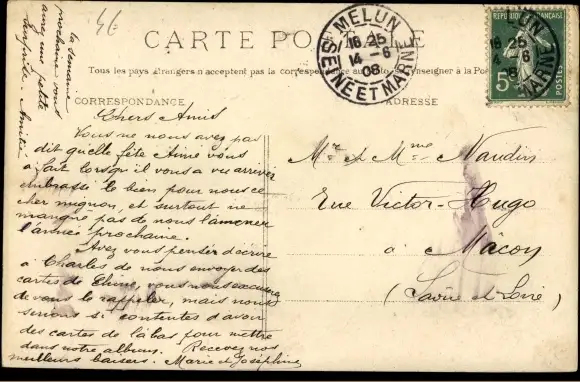 46
CARTE POSTALE
Tous les pays étrangers n'acceptent pas la correspondance au recto (se renseigner à la Poste)
CORRESPONDANCE
ADRESSE
MELUN
16 25
14 - 6
08
SEINE ET MARNE
5c
POSTES
Chers Amis
Vous ne nous avez pas
dit quelle fête Aimé vous
a fait lorsqu'il vous a vu arriver
embrassé le bien pour nous ce
cher mignon, et surtout ne
manqué pas de nous l'amener
l'année prochaine.
Avez vous penser d'écrire
à Charles de nous envoyer des
cartes de Chine, vous nous excuserez
de vous le rappeler, mais nous
serions si contentes d'avoir
des cartes de làbas, pour mettre
dans notre album. Recevez nos
meilleurs baisers. Marie et Joséphine
la semaine
prochaine vous
aurez une petite
surprise. Amitié
Mr et Mme Naudin
Rue Victor-Hugo
à Mâcon
(Saône et Loire)